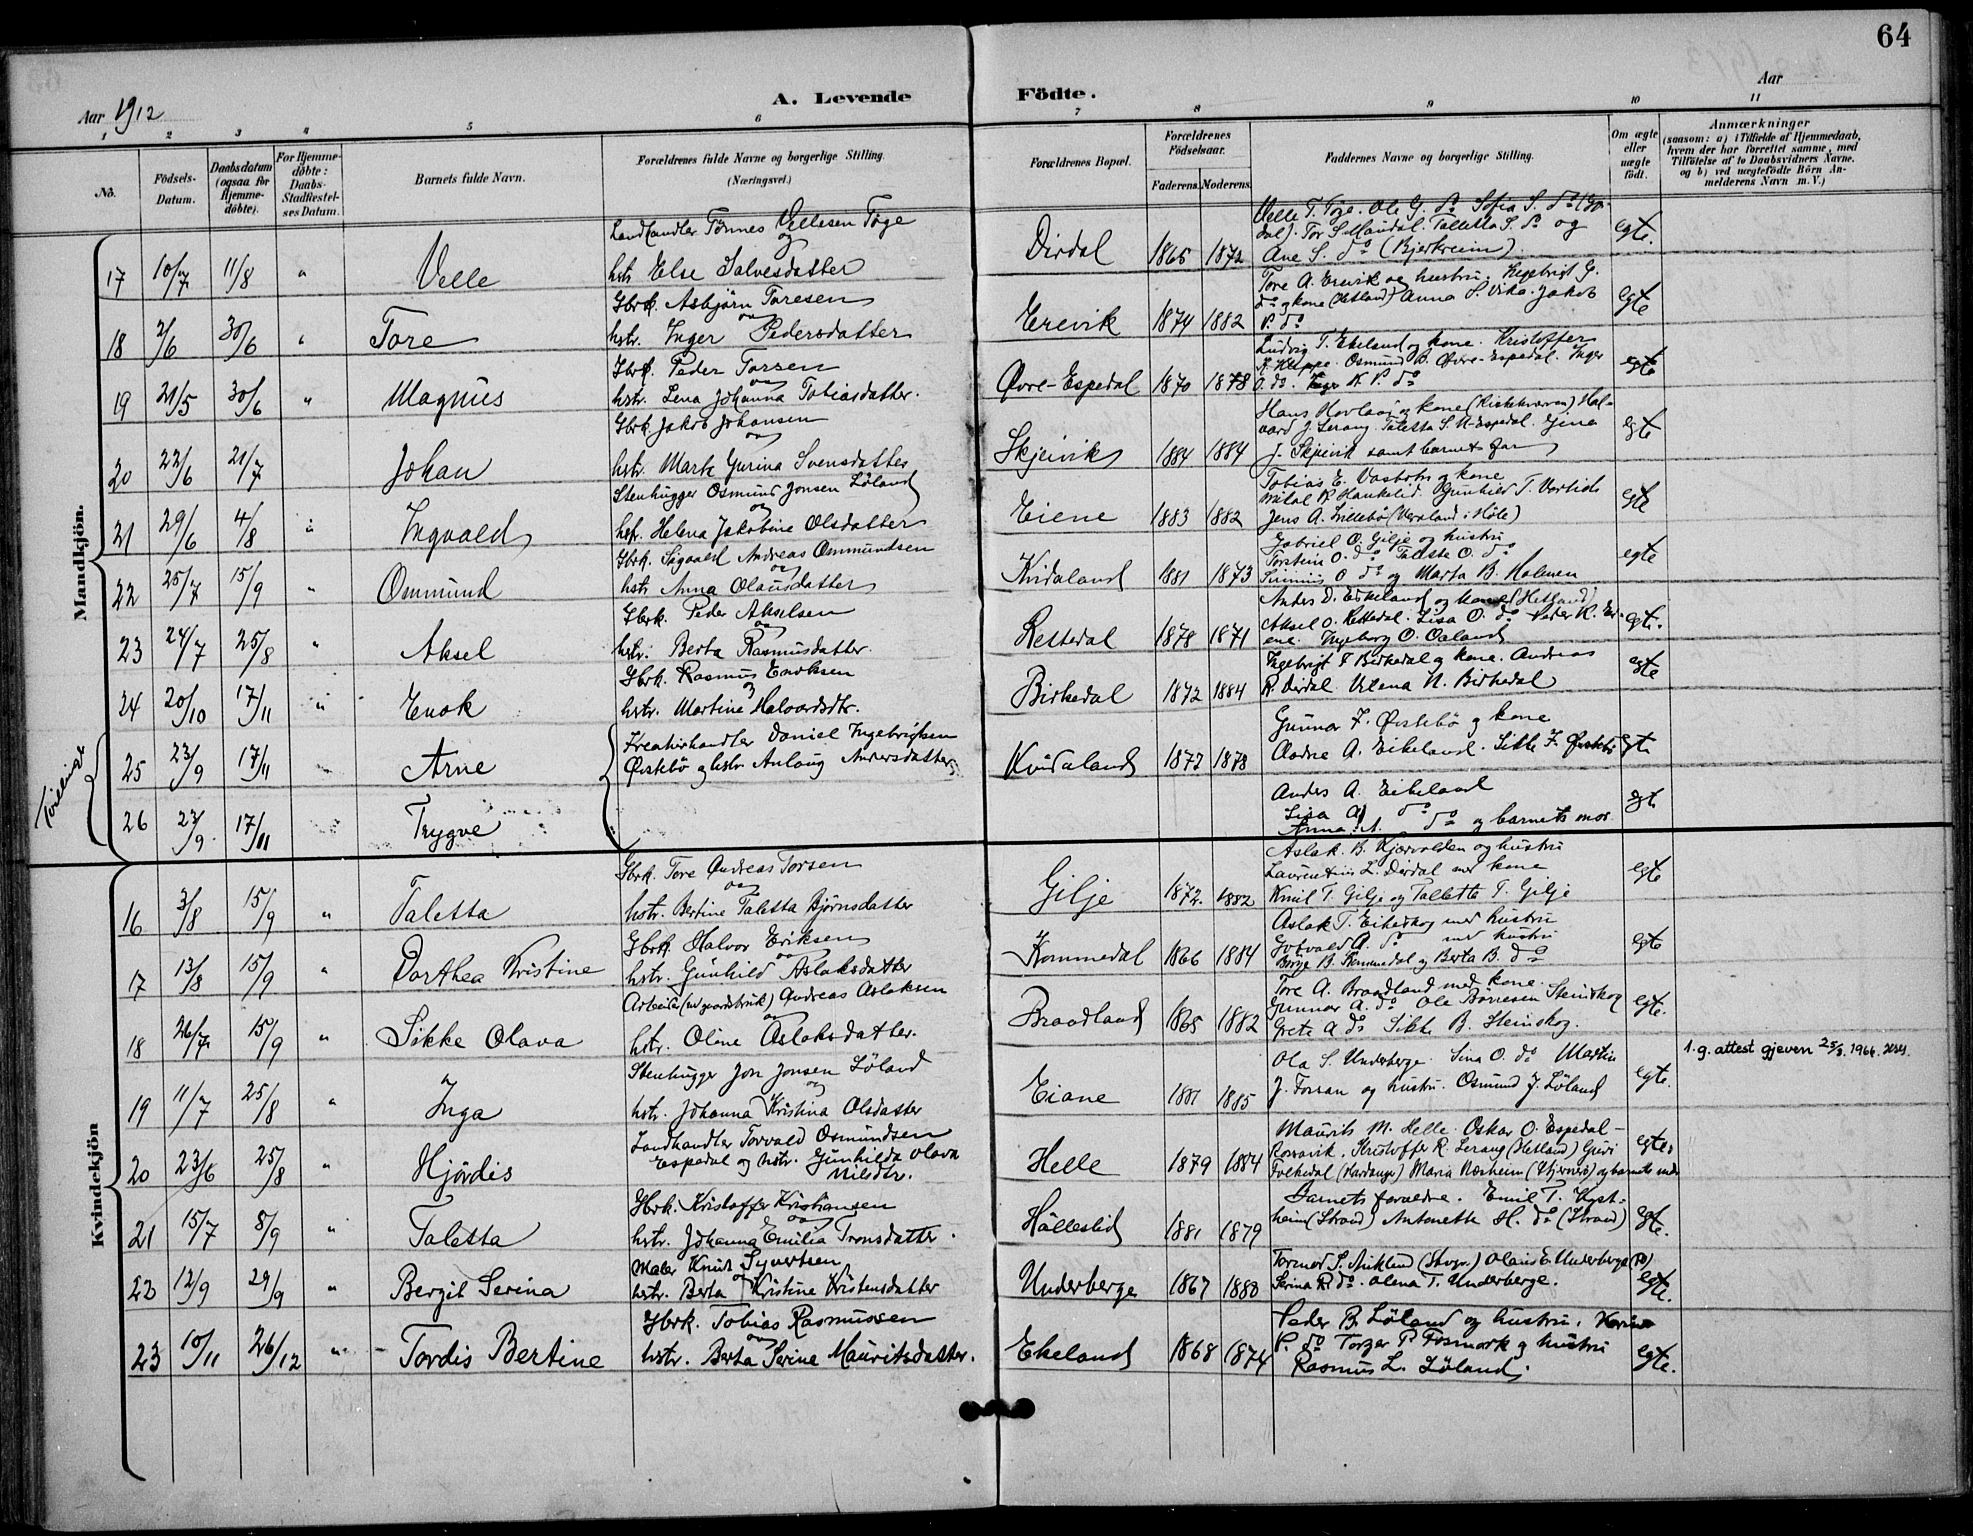 64
Aar 1912
A. Levende Födte.
Aar
1 2 3 4 5 6 7 8 9 10 11
No.
Födsels-Datum.
Daabsdatum (ogsaa for Hjemme-döbte).
For Hjemme-döbte: Daabs-Stadfæstel-ses Datum.
Barnets fulde Navn.
Forældrenes fulde Navne og borgerlige Stilling. (Næringsvei.)
Forældrenes Bopæl.
Forældrenes Födselsaar.
Faderens. Moderens.
Faddernes Navne og borgerlige Stilling.
Om ægte eller uægte födt.
Anmærkninger
(saasom: a) i Tilfælde af Hjemmedaab, hvem der har forrettet samme, med Tilföielse af to Daabsvidners Navne. og b) ved uægtefödte Börn An-melderens Navn m. V.)
Mandkjön.
17 10/7 11/8 " Velle
Landhandler Tønnes Vellesen Tøge og
hstr. Else Salvesdatter
Dirdal 1865 1872
Velle T. Tøge. Ole G. do Sofia S. do
Tor S. Maudal. Talletta S. do og
Ane S. do (Bjerkreim)
egte.
18 2/6 30/6 " Tore
Gbrk. Asbjørn Toresen og
hstr. Inger Pedersdatter
Erevik 1874 1882
Tore A. Erevik og hustru. Ingebrigt G.
do og kone (Hetland) Anna S. Vika. Jakob
P. do
egte
19 21/5 30/6 " Magnus
Gbrk. Peder Torsen og
hstr. Lena Johanna Tobiasdatter.
Øvre-Espedal 1870 1878
Ludvig T. Ekeland og kone. Kristoffer
K. Kleppe. Osmund B. Øvre-Espedal. Inger
O. do. K. P. do
egte
20 22/6 21/7 Johan
Gbrk. Jakob Johansen og
hstr. Marte Gurina Svensdatter
Skjeivik 1884 1884
Hans og kone Hal-
vard J. Lerang. Taletta S. N-Espedal. Gina
J. Skjeivik samt barnets far
egte
21 29/6 4/8 " Ingvald
Stenhugger Osmund Jonsen Løland og
hst. Helena Jakobine Olsdatter
Eiene 1883 1882
Tobias E. og kone
K. Haukelid. Gunhild T.
Jens A. Lillebø
egte
22 25/7 15/9 " Ommund
Gbrk. Sigvald Andreas Ommundsen og
hstr. Anna Olausdatter
Kvidaland 1881 1873
Gabriel O. Gilje og hustru
Torstein O. do O. do
O do og Marta B. Holmen
egte
23 24/7 25/8 " Aksel
Gbrk. Peder Akselsen og
hstr. Berta Rasmusdatter.
Rettedal 1878 1871
Anders D. Eskeland og kone (Hetland)
Aksel O. Rettedal. Lisa O. do Peder R. Ei-
ene. Ingeborg O. Oaland
egte.
24 20/10 17/11 " Enok
Gbrk. Rasmus Enoksen og
hstr. Martine Halvardsdtr.
Birkedal 1872 1884
Ingebrigt T Birkedal og kone. Andreas
R. Dirdal N. Birkedal
egte
Tvillinge
25 23/9 17/11 Arne
Kreaturhandler Daniel Ingebrigtsen
Ørstebø og hstr. Anlaug Andersdatter
Kvidaland 1877 1878
Gunnar I. Ørstebø og kone
A. Eikeland. Sikke I. Ørstebø
egte
26 23/9 17/11 Trygve
Anders A. Eikeland
Lisa A. do
Anna A. do og barnets mor
egt
Kvindekjön
16 3/8 15/9 " Taletta
Gbrk. Tore Andreas Torsen og
hstr. Bertine Taletta Bjørnsdatter
Gilje 1872. 1882
Aslak B. Kjærvolden og hustru
Laurentius L. Dirdal med kone
Emil T. Gilje og Talletta T. Gilje
egte
17 13/8 15/9 " Dorthea Kristine
Gbrk. Halvor Eriksen og
hstr. Gunhild Aslaksdatter
Kommedal 1866 1884
Aslak T. Eikeskog med hustru
Gotvald A. do med hustru
Børge B. Kommedal og Berta B. do
egte
18 26/7 15/9 " Sikke Olava
Arbeider (ved gaardsbruk) Andreas Aslaksen og
hstr. Oline Aslaksdatter.
Braadland 1865 1882
Tore A. Braadland med kone.
Gunnar A. do Ole Børresen Steinskog
Grete A do Sikke B. Steinskog.
egte.
19 11/7 25/8 " Inga
Stenhugger Jon Jonsen Løland og
hstr. Johanna Kristina Olsdatter
Eiane 1881 1885
Ola S. Underberge. Sina O. do Martin
J. Forsan og hustru. Osmund J. Løland
egte.
1. g. attest gjeven 25/3. 1966.
20 23/6 25/8 " Hjördis
Landhandler Torvald Osmundsen
Espedal og hstr. Gunhilda Olava
Nilsdtr.
Helle 1879 1884
Maurits M. Helle. Oskar O. Espedal -
Rossavik. Kristoffer R. Lerang (Hetland) Guri
Folkedal (Hardanger) Maria Næsheim og barnets mor
egte.
21 15/7 8/9 " Taletta
Gbrk. Kristoffer Kristiansen og
hstr. Johanna Emilia Tronsdatter.
Hålleslid 1881 1879
Barnets foreldre. Emil T. Kyst-
heim (Strand) Antonette H. do (Strand)
egte.
22 12/9 29/9 " Bergit Serina
Maler Knut Syvertsen og
hstr. Berta Kristine Kristensdatter
Underberge 1867 1880
Tormod S. (Stvgr.) Olaus E. Underberge
Serina R. do. Olena T. Underberge.
egte.
23 10/11 26/12 " Tordis Bertine
Gbrk. Tobias Rasmussen og
hstr. Berta Serine Mauritsdatter.
Ekeland 1868 1874
Peder B. Løland og hustru.
P. do Torger P. Fosmark og hustru
Rasmus L. Løland.
egte.